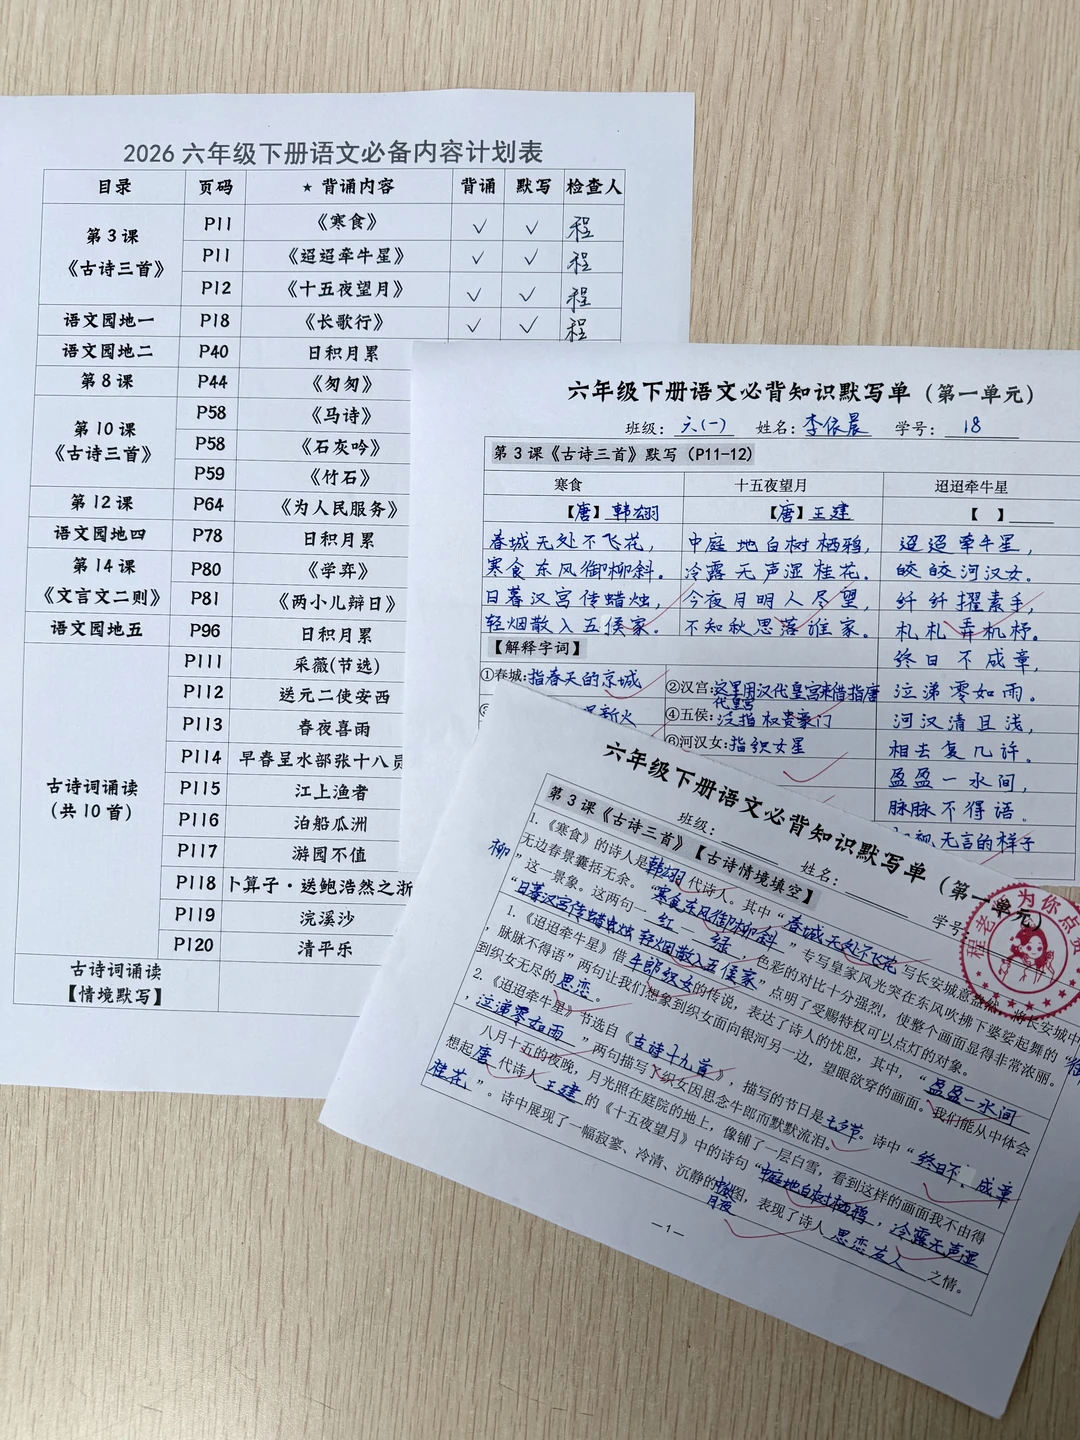 2026六年级下册语文必备内容计划表
目录 页码 ★背诵内容 背诵 默写 检查人
第3课
《古诗三首》
P11 《寒食》 √ √ 程
P11 《迢迢牵牛星》 √ √ 程
P12 《十五夜望月》 √ √ 程
语文园地一 P18 《长歌行》 √ √ 程
语文园地二 P40 日积月累
第8课 P44 《匆匆》
第10课
《古诗三首》
P58 《马诗》
P58 《石灰吟》
P59 《竹石》
第12课 P64 《为人民服务》
语文园地四 P78 日积月累
第14课
《文言文二则》
P80 《学弈》
P81 《两小儿辩日》
语文园地五 P96 日积月累
古诗词诵读
(共10首)
P111 采薇(节选)
P112 送元二使安西
P113 春夜喜雨
P114 早春呈水部张十八员
P115 江上渔者
P116 泊船瓜洲
P117 游园不值
P118 卜算子·送鲍浩然之浙
P119 浣溪沙
P120 清平乐
古诗词诵读
【情境默写】
六年级下册语文必背知识默写单（第一单元）
班级：六(一) 姓名：李依晨 学号：18
第3课《古诗三首》默写（P11-12）
寒食 十五夜望月 迢迢牵牛星
【唐】韩翃 【唐】王建 【 】
春城无处不飞花，
寒食东风御柳斜。
日暮汉宫传蜡烛，
轻烟散入五侯家。
中庭地白树栖鸦，
冷露无声湿桂花。
今夜月明人尽望，
不知秋思落谁家。
迢迢牵牛星，
皎皎河汉女。
纤纤擢素手，
札札弄机杼。
终日不成章，
泣涕零如雨。
河汉清且浅，
相去复几许。
盈盈一水间，
脉脉不得语。
【解释字词】
①春城：指春天的京城
②汉宫：这里用汉代皇宫来借指唐代皇宫
新火
④五侯：泛指权贵豪门
⑥河汉女：指织女星
无言的样子
六年级下册语文必背知识默写单（第一单元）
班级： 姓名： 学号：
第3课《古诗三首》【古诗情境填空】
1.《寒食》的诗人是韩翃代诗人。其中“春城无处不飞花”写长安城意盎然，将长安城中
无边春景囊括无余。“寒食东风御柳斜”专写皇家风光突在东风吹拂下婆娑起舞的“御
柳”这一景象。这两句一红一绿，色彩的对比十分强烈，使整个画面显得非常浓丽。
“日暮汉宫传蜡烛，轻烟散入五侯家”点明了受赐特权可以点灯的对象。
1.《迢迢牵牛星》借牛郎织女的传说，表达了诗人的忧思，其中，“盈盈一水间
，脉脉不得语”两句让我们想象到织女面向银河另一边，望眼欲穿的画面。我们能从中体会
到织女无尽的思恋。
2.《迢迢牵牛星》节选自《古诗十九首》，描写的节日是七夕节。诗中“终日不成章
，泣涕零如雨”两句描写了织女因思念牛郎而默默流泪。
八月十五的夜晚，月光照在庭院的地上，像铺了一层白雪，看到这样的画面我不由得
想起唐代诗人王建的《十五夜望月》中的诗句“中庭地白树栖鸦，冷露无声湿
桂花”。诗中展现了一幅寂寥、冷清、沉静的中秋月夜图，表现了诗人思恋友人之情。
—1—
程老 为你点